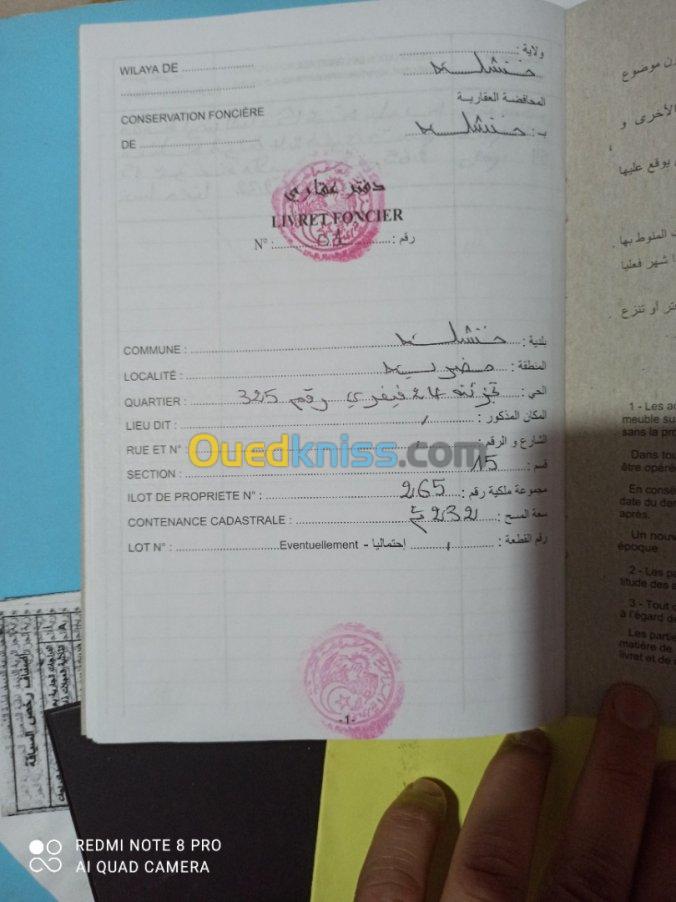 WILAYA DE .................... ولاية : خنشلة
CONSERVATION FONCIÈRE المحافظة العقارية
DE .................... بـ : خنشلة
دفتر عقاري
LIVRET FONCIER
N° : ............ 01 ............ رقم :
COMMUNE : .................... بلدية : خنشلة
LOCALITÉ : .................... المنطقة : حضرية
QUARTIER : .................... الحي : تجزئة 24 فيفري رقم 325
LIEU DIT : .................... المكان المذكور : /
RUE ET N° : .................... الشارع و الرقم : /
Ouedkniss.com
SECTION : .................... قسم : 15
ILOT DE PROPRIETE N° : .................... مجموعة ملكية رقم : 265
CONTENANCE CADASTRALE : .................... سعة المسح : 232
LOT N° : .................... Eventuellement - إحتماليا ........ / ........ رقم القطعة :
-1-
ن موضوع
الأخرى و
يوقع عليها
المنوط بها .
شهر فعليا
أو تنزع
1 - Les
meuble su
sans la pro
Dans tou
être opéré
En consé
date du der
après.
Un nouv
époque
2 - Les pa
titude des
3 - Tout
à l'égard d
Les partie
matière de
livret et de
REDMI NOTE 8 PRO
AI QUAD CAMERA